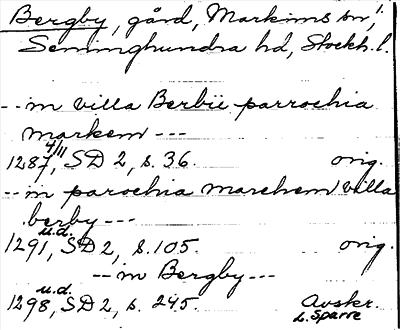 Bergby, gård, Markims sn,
Seminghundra hd, Stockh. l.
-- in villa Berbii parrochia
markem ---
1287 4/11, SD 2, s. 36. orig.
-- in parochia marchem villa
berby ---
1291 u.d., SD 2, s. 105. orig.
-- in Bergby ---
1298 u.d., SD 2, s. 245. Avskr.
L. Sparre